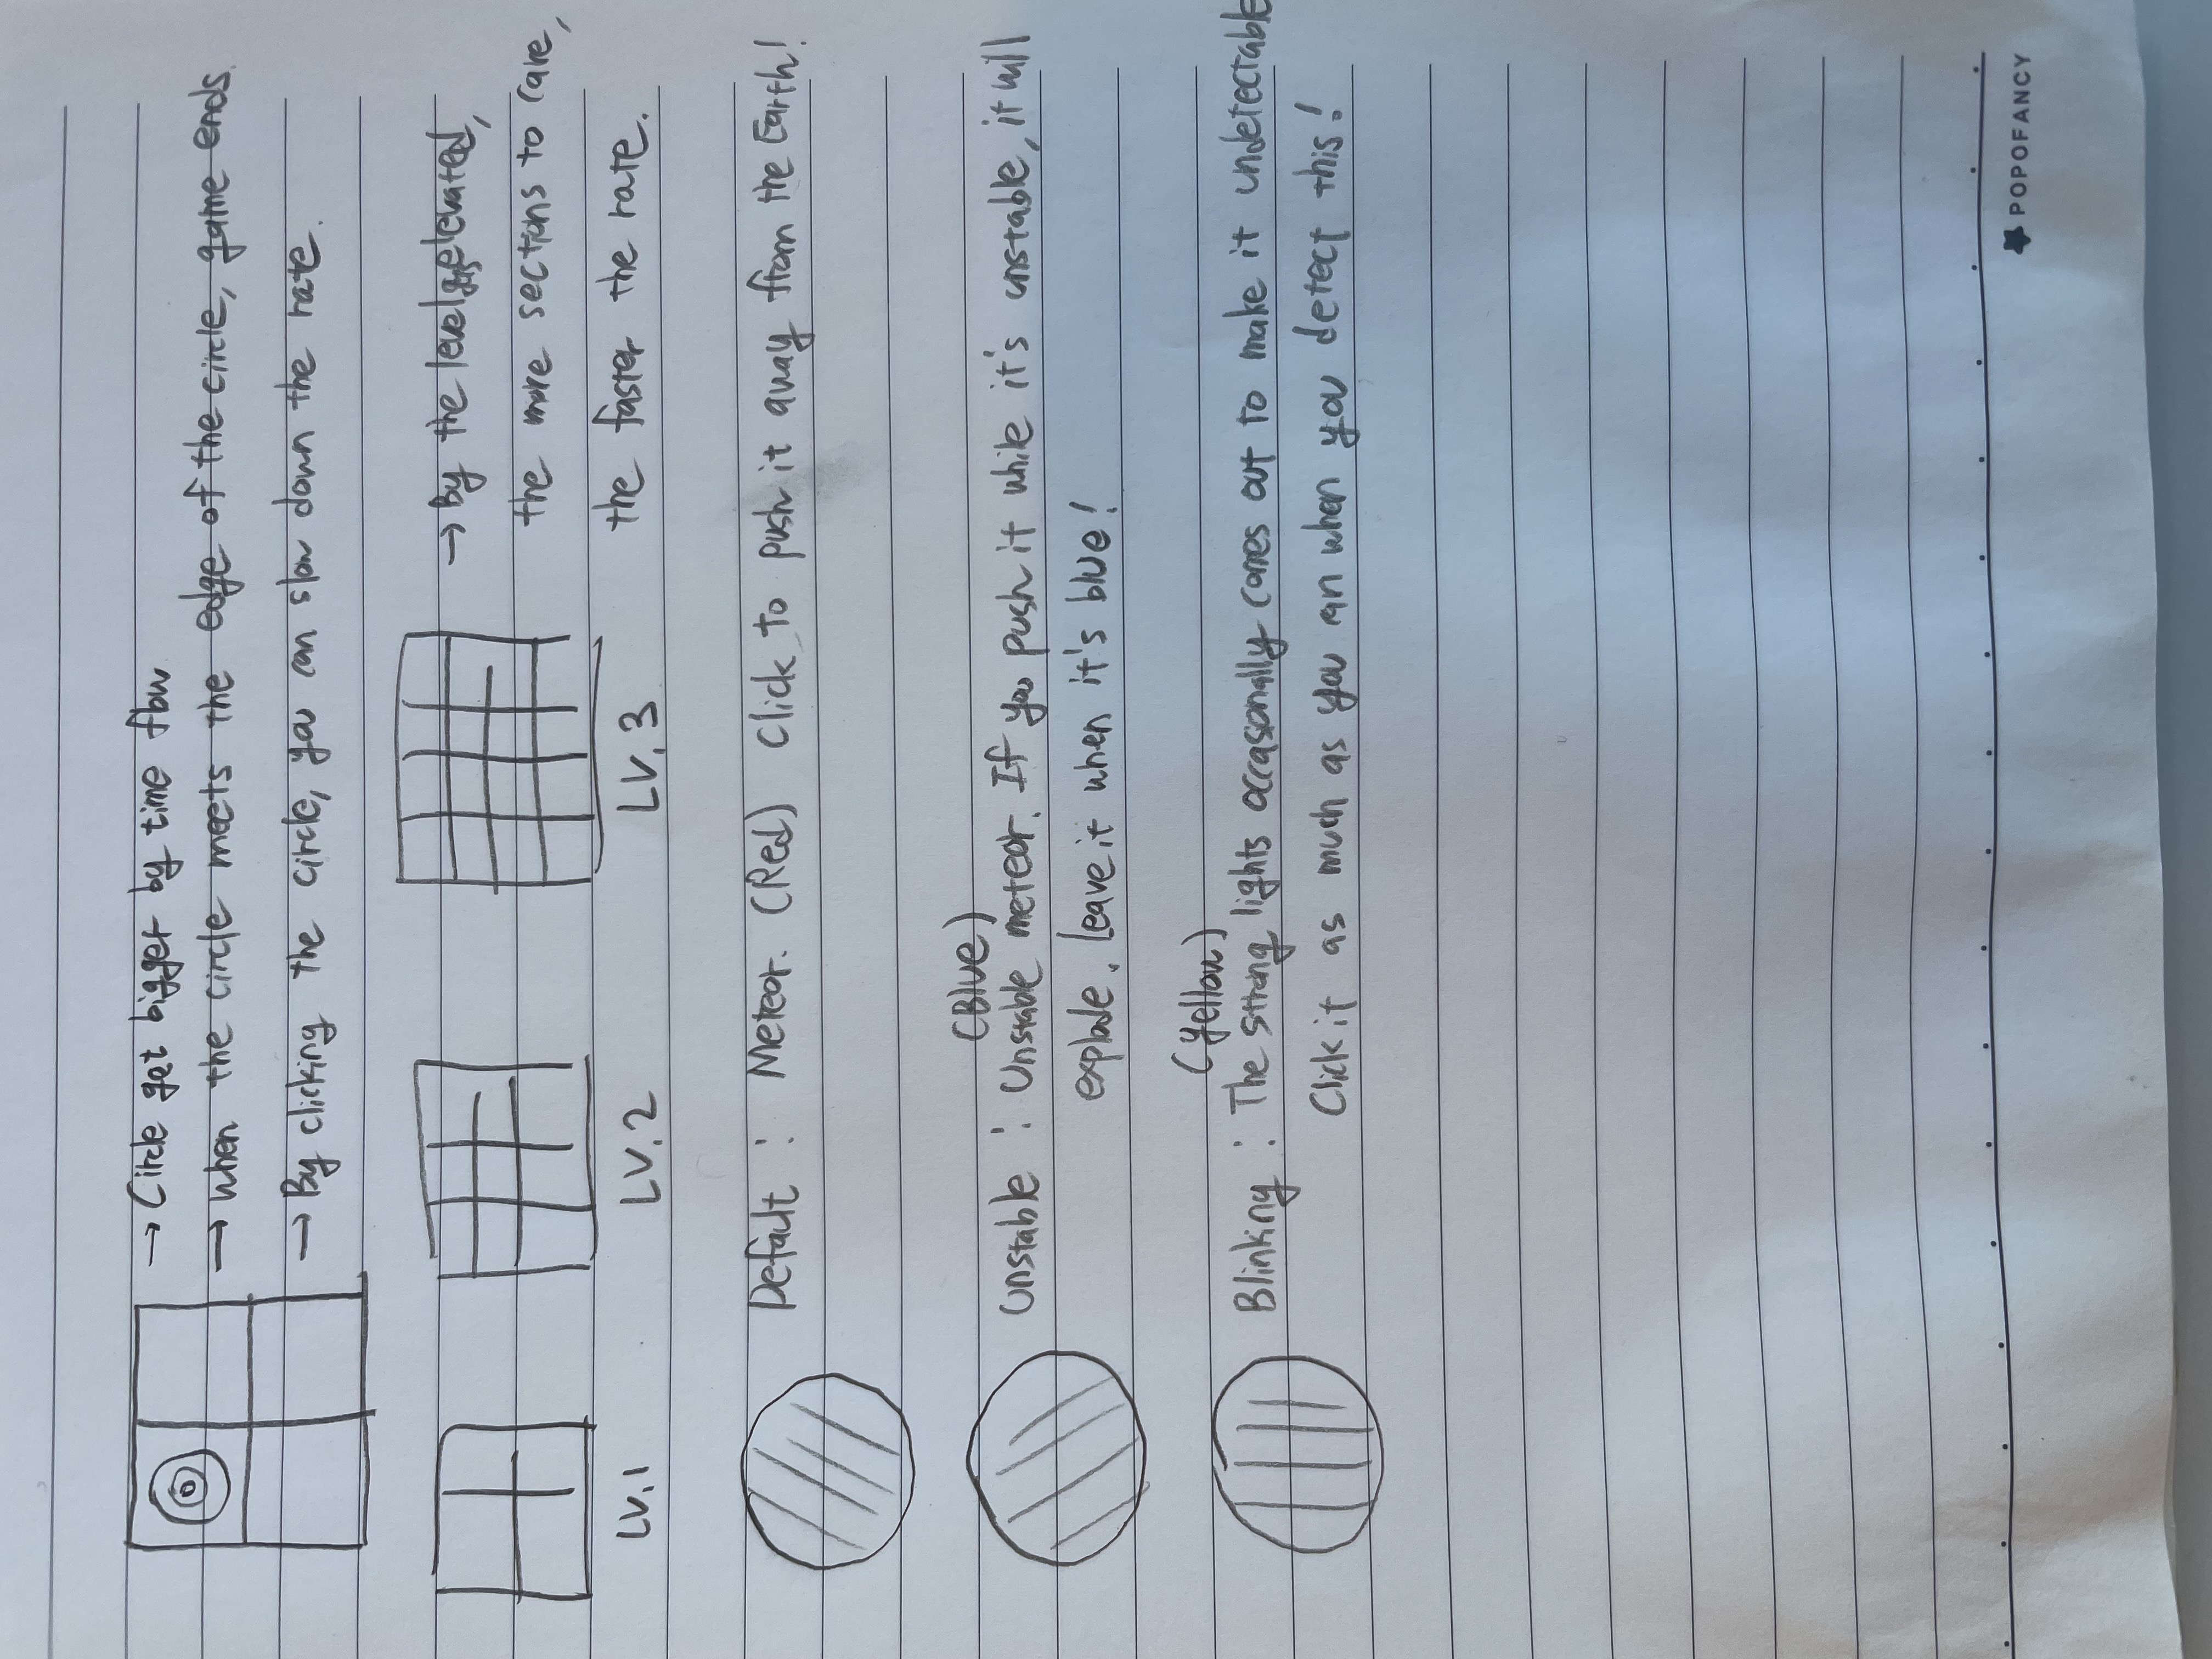 → Circle get bigger by time flow
→ when the circle meets the edge of the circle, game ends.
→ By clicking the circle, you can slow down the rate.
→ By the level gets elevated,
the more sections to care,
the faster the rate.
LV.1 LV.2 LV.3
Default : Meteor. (Red) Click to push it away from the Earth!
(Blue)
Unstable : Unstable meteor. If you push it while it's unstable, it will
explode. Leave it when it's blue!
(Yellow)
Blinking : The strong lights occasonally comes out to make it undetectable
Click it as much as you can when you detect this!
POPOFANCY